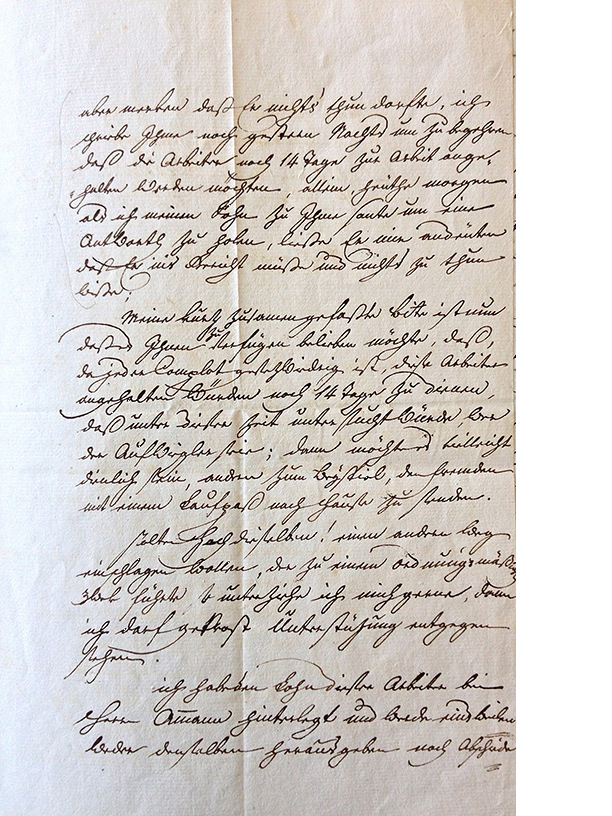 aber merken daß Er nichts thun dorfte, ich
schribe Ihme noch gestern Nachts um zu begehren
daß die Arbeiter noch 14 Tage zur Arbeit ange-
halten werden möchten, allein, heüthe morgen
als ich meinen Sohn zu Ihme sante um eine
Antworth zu holen, ließe Er mir andeuten
daß Er ins Gericht müße und nichts zu thun
wiße;
Meine kurtz zusamengefaßte Bitte ist nun
daß es Ihnen zu verfügen belieben möchte, daß,
da jeder Complot gesetzwidrig ist, diese Arbeiter
angehalten würden noch 14 Tage zu dienen,
daß unter dieser Zeit untersucht würde, wer
der Aufwigler seie; dann möchte es vielleicht
dienlich sein, andern zum Beyspiel, den fremden
mit einem Laufpaß nach Hause zu senden.
Solten Hochdieselben! einen andern Weg
einschlagen wollen, der zu einem ordnungsmäßigen
Zwek führte, so unterziehe ich mich gerne, denn
ich darf getrost Unterstüzung entgegen
sehen.
ich habe den Lohn dieser Arbeiter bei
Herrn Amann hinterlegt und werde einsweilen
weder denselben herausgeben noch Abschiede